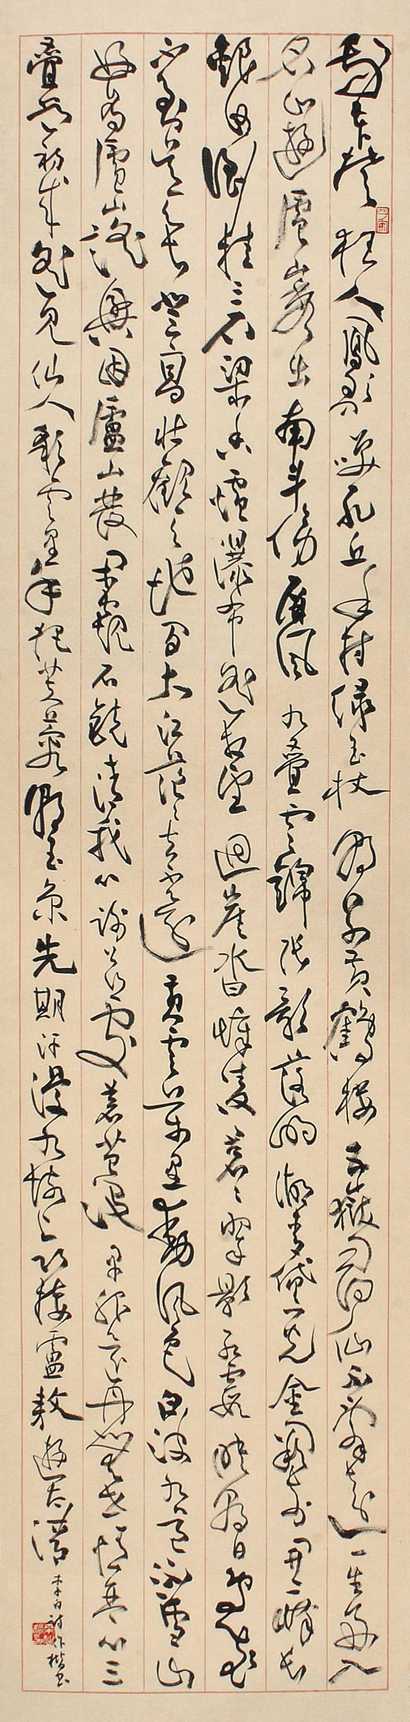 我本楚狂人鳳歌笑孔丘手持綠玉杖朝別黃鶴樓五嶽尋仙不辭遠一生好入
名山遊廬山秀出南斗傍屏風九疊雲錦張影落明湖青黛光金闕前開二峰長
銀河倒挂三石梁香爐瀑布遙相望迴崖沓嶂凌蒼々翠影紅霞映朝日鳥飛
不到吳天長登高壯觀天地間大江茫々去不還黃雲萬里動風色白波九道流雪山
好為廬山謠興因廬山發閑窺石鏡清我心謝公行處蒼苔沒早服還丹無世情琴心三
疊道初成遙見仙人彩雲里手把芙蓉朝玉京先期汗漫九垓上願接盧敖遊太清
李白詩